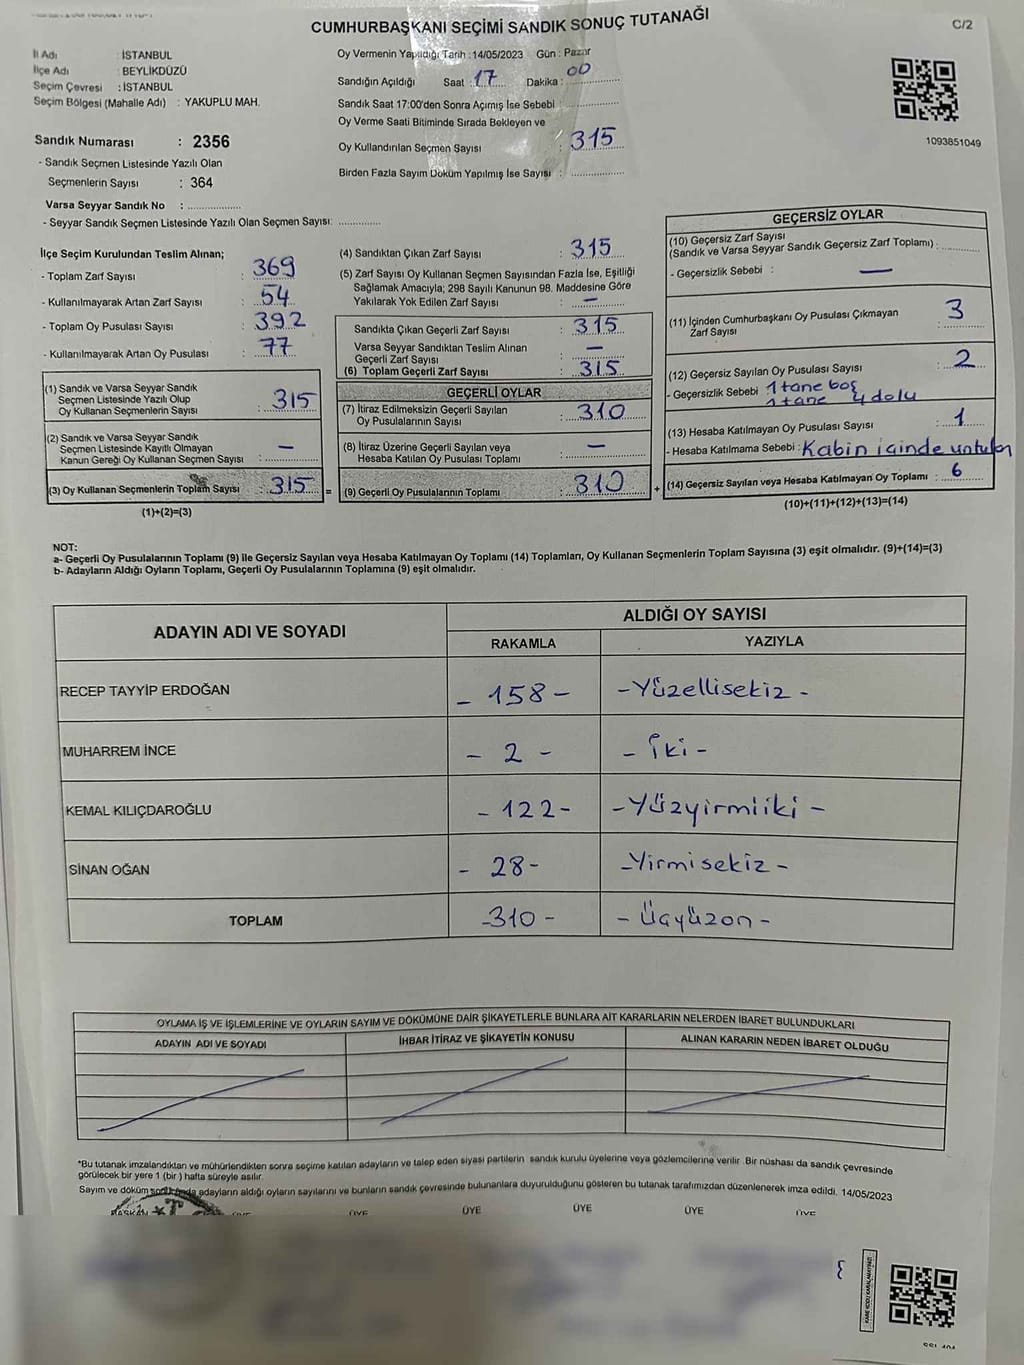 CUMHURBAŞKANI SEÇİMİ SANDIK SONUÇ TUTANAĞI
C/2
İl Adı : İSTANBUL
İlçe Adı : BEYLİKDÜZÜ
Seçim Çevresi : İSTANBUL
Seçim Bölgesi (Mahalle Adı) : YAKUPLU MAH.
Sandık Numarası : 2356
- Sandık Seçmen Listesinde Yazılı Olan
Seçmenlerin Sayısı : 364
Varsa Seyyar Sandık No : ..................
- Seyyar Sandık Seçmen Listesinde Yazılı Olan Seçmen Sayısı: ..............
Oy Vermenin Yapıldığı Tarih :14/05/2023 Gün : Pazar
Sandığın Açıldığı Saat : 17 Dakika : 00
Sandık Saat 17:00'den Sonra Açımış İse Sebebi : ..................
Oy Verme Saati Bitiminde Sırada Bekleyen ve
Oy Kullandırılan Seçmen Sayısı : 315
Birden Fazla Sayım Döküm Yapılmış İse Sayısı : ..................
1093851049
İlçe Seçim Kurulundan Teslim Alınan;
- Toplam Zarf Sayısı : 369
- Kullanılmayarak Artan Zarf Sayısı : 54
- Toplam Oy Pusulası Sayısı : 392
- Kullanılmayarak Artan Oy Pusulası : 77
(1) Sandık ve Varsa Seyyar Sandık
Seçmen Listesinde Yazılı Olup
Oy Kullanan Seçmenlerin Sayısı : 315
(2) Sandık ve Varsa Seyyar Sandık
Seçmen Listesinde Kayıtlı Olmayan
Kanun Gereği Oy Kullanan Seçmen Sayısı : –
(3) Oy Kullanan Seçmenlerin Toplam Sayısı : 315 =
(1)+(2)=(3)
(4) Sandıktan Çıkan Zarf Sayısı : 315
(5) Zarf Sayısı Oy Kullanan Seçmen Sayısından Fazla İse, Eşitliği
Sağlamak Amacıyla; 298 Sayılı Kanunun 98. Maddesine Göre
Yakılarak Yok Edilen Zarf Sayısı : –
Sandıkta Çıkan Geçerli Zarf Sayısı : 315
Varsa Seyyar Sandıktan Teslim Alınan
Geçerli Zarf Sayısı : –
(6) Toplam Geçerli Zarf Sayısı : 315
GEÇERLİ OYLAR
(7) İtiraz Edilmeksizin Geçerli Sayılan
Oy Pusulalarının Sayısı : 310
(8) İtiraz Üzerine Geçerli Sayılan veya
Hesaba Katılan Oy Pusulası Toplamı : –
(9) Geçerli Oy Pusulalarının Toplamı : 310 +
GEÇERSİZ OYLAR
(10) Geçersiz Zarf Sayısı
(Sandık ve Varsa Seyyar Sandık Geçersiz Zarf Toplamı) : ............
- Geçersizlik Sebebi : –
(11) İçinden Cumhurbaşkanı Oy Pusulası Çıkmayan
Zarf Sayısı : 3
(12) Geçersiz Sayılan Oy Pusulası Sayısı : 2
- Geçersizlik Sebebi : 1 tane boş
1 tane 4 dolu
(13) Hesaba Katılmayan Oy Pusulası Sayısı : 1
- Hesaba Katılmama Sebebi : Kabin içinde untulan
(14) Geçersiz Sayılan veya Hesaba Katılmayan Oy Toplamı : 6
(10)+(11)+(12)+(13)=(14)
NOT:
a- Geçerli Oy Pusulalarının Toplamı (9) ile Geçersiz Sayılan veya Hesaba Katılmayan Oy Toplamı (14) Toplamları, Oy Kullanan Seçmenlerin Toplam Sayısına (3) eşit olmalıdır. (9)+(14)=(3)
b- Adayların Aldığı Oyların Toplamı, Geçerli Oy Pusulalarının Toplamına (9) eşit olmalıdır.
ADAYIN ADI VE SOYADI
ALDIĞI OY SAYISI
RAKAMLA YAZIYLA
RECEP TAYYİP ERDOĞAN - 158 - - Yüzellisekiz -
MUHARREM İNCE - 2 - - İki -
KEMAL KILIÇDAROĞLU - 122 - - Yüzyirmiiki -
SİNAN OĞAN - 28 - - Yirmisekiz -
TOPLAM - 310 - - Üçyüzon -
OYLAMA İŞ VE İŞLEMLERİNE VE OYLARIN SAYIM VE DÖKÜMÜNE DAİR ŞİKAYETLERLE BUNLARA AİT KARARLARIN NELERDEN İBARET BULUNDUKLARI
ADAYIN ADI VE SOYADI İHBAR İTİRAZ VE ŞİKAYETİN KONUSU ALINAN KARARIN NEDEN İBARET OLDUĞU
*Bu tutanak imzalandıktan ve mühürlendikten sonra seçime katılan adayların ve talep eden siyasi partilerin sandık kurulu üyelerine veya gözlemcilerine verilir .Bir nüshası da sandık çevresinde
görülecek bir yere 1 (bir ) hafta süreyle asılır.
Sayım ve döküm sonucunda adayların aldığı oyların sayılarını ve bunların sandık çevresinde bulunanlara duyurulduğunu gösteren bu tutanak tarafımızdan düzenlenerek imza edildi. 14/05/2023
BAŞKAN ÜYE ÜYE ÜYE ÜYE ÜYE ÜYE